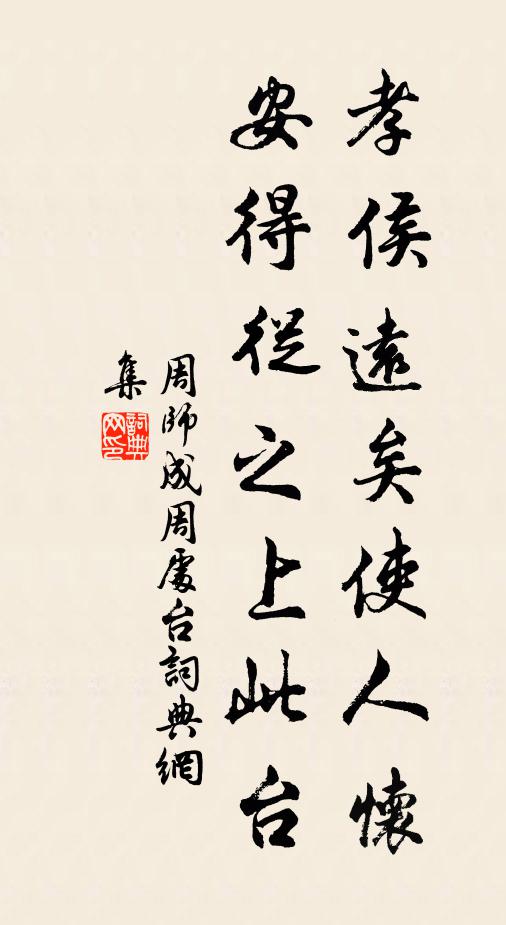 孝侯遠矣使人懷
安得從之上此台
周師成周處台詞典網
集
詞典
网印